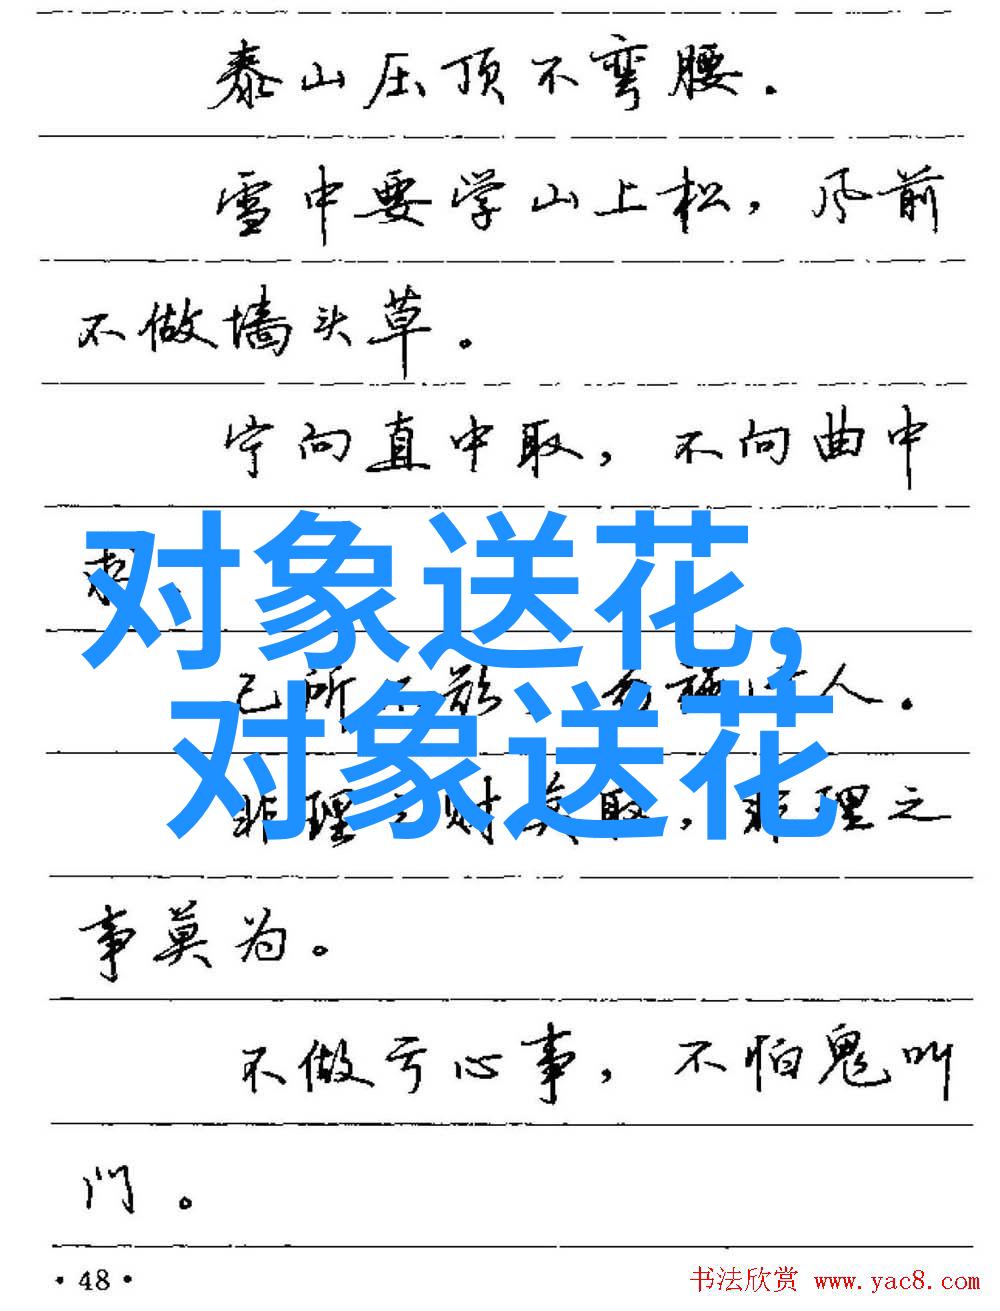 泰山压顶不弯腰.
雪中要学山上松,风前
不做墙头草。
宁向直中取,不向曲中
求.
对象送花,
己所不欲,勿施于人.
对象送花
非理之财莫取,非理之
事莫为。
不做亏心事,不怕鬼叫
门。
·48·
书法欣赏 www.yac8.com